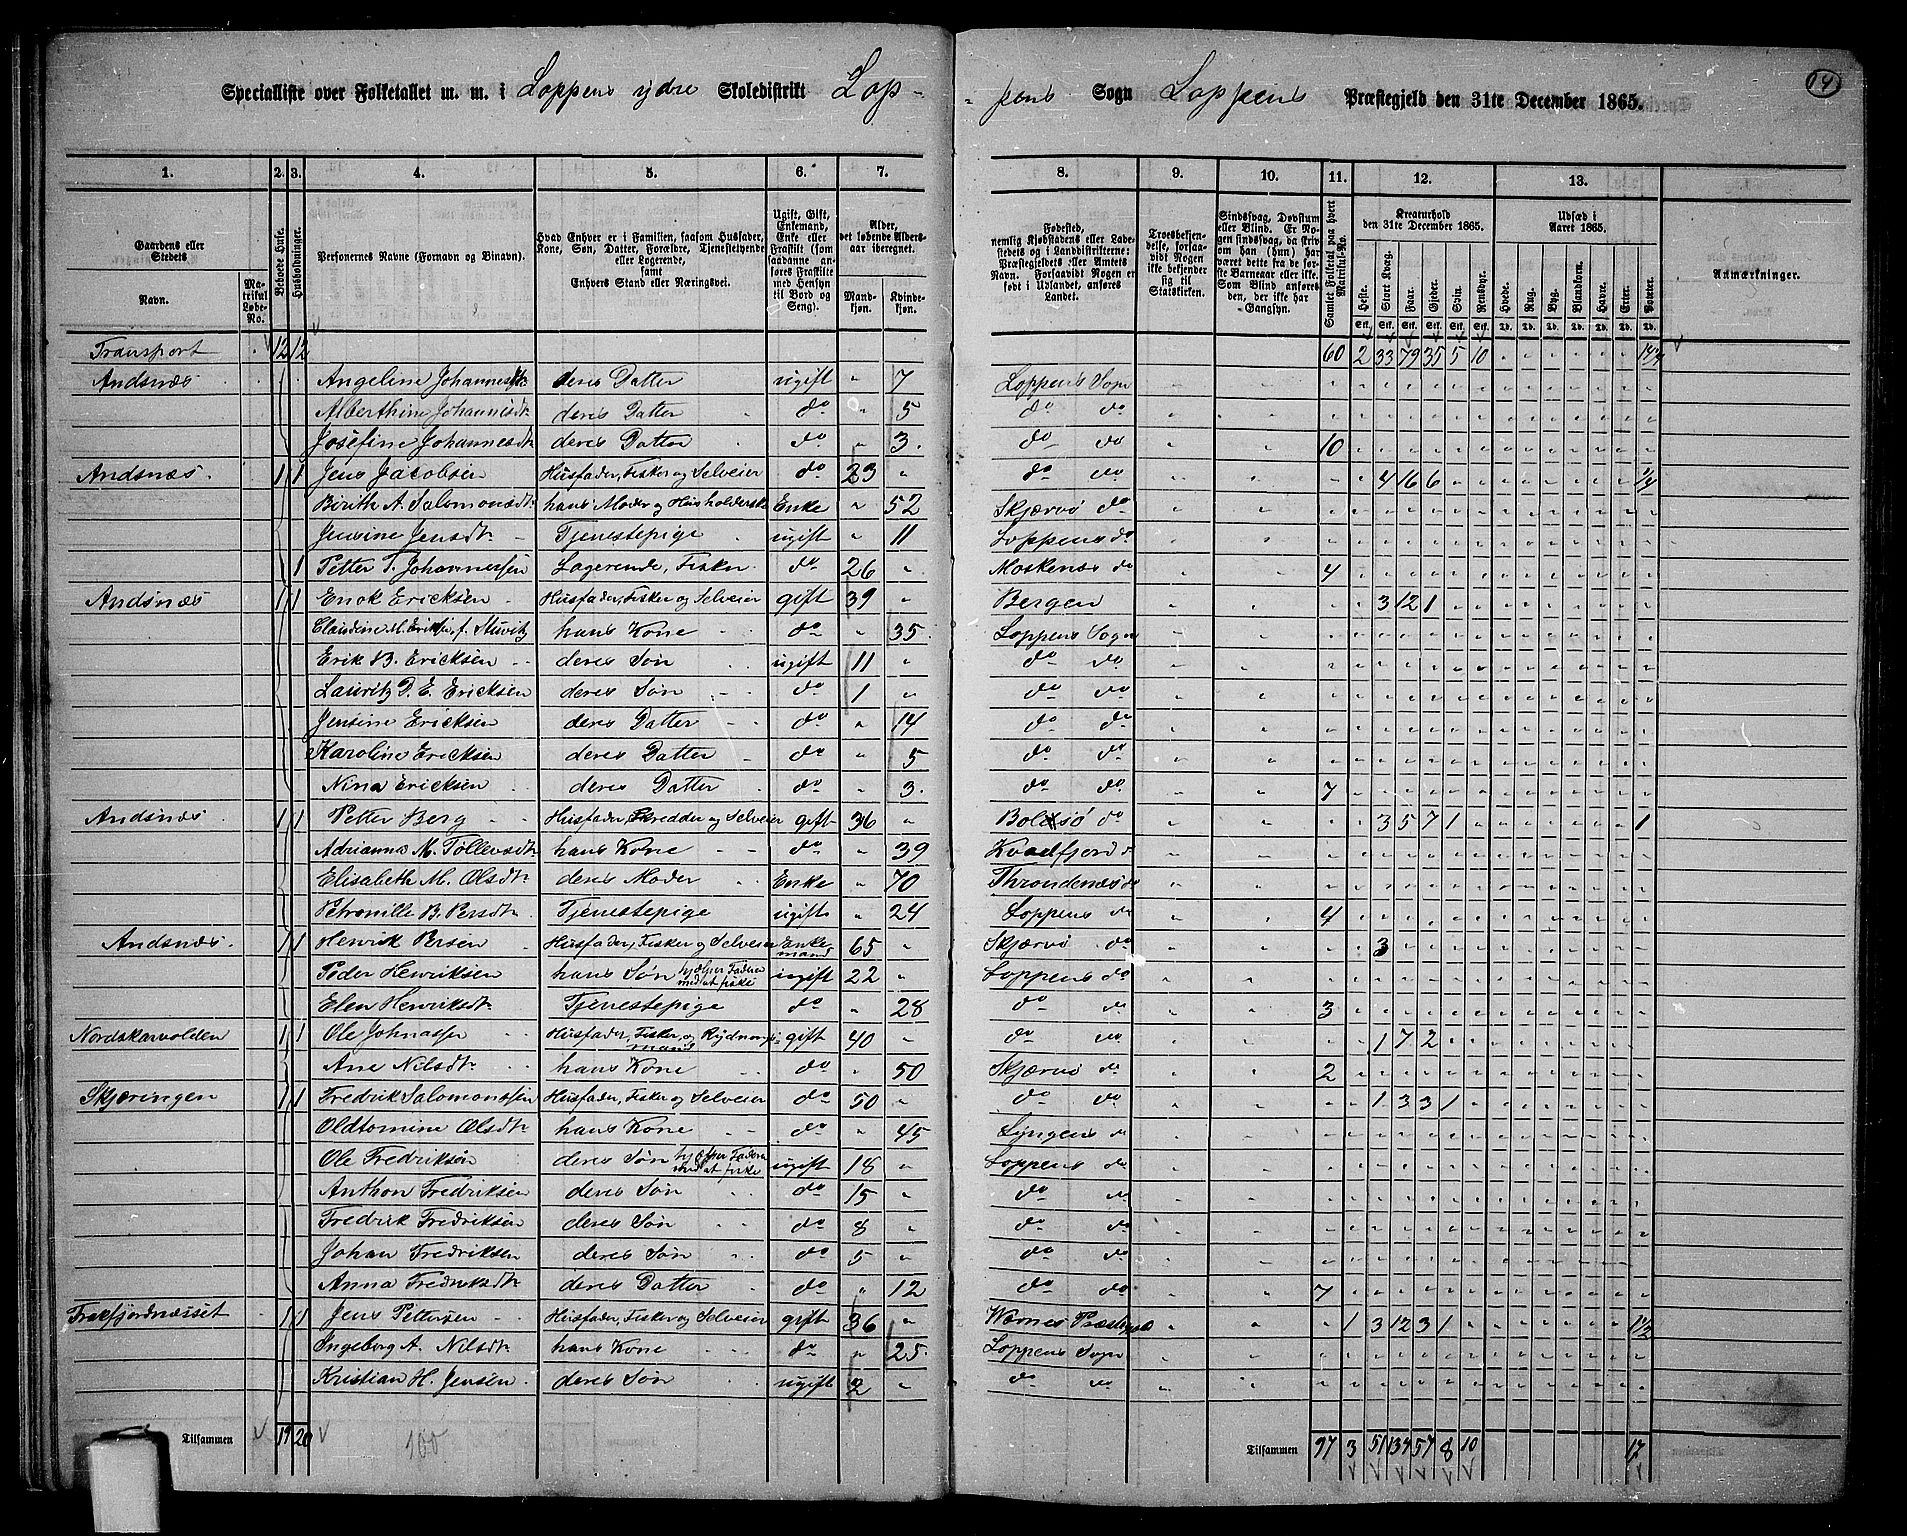 Specialliste over Folketallet m. m. i Loppens ydre Skoledistrikt Lop-
-pens Sogn Loppens Præstegjeld den 31te December 1865. 14
1. 2. 3. 4. 5. 6. 7. 8. 9. 10. 11. 12. 13.
Gaardens eller Stedets Navn. Matrikul Løbe-No. Beboede Huse. Husholdninger. Personernes Navne (Fornavn og Binavn). Hvad Enhver er i Familien, saasom Husfader, Kone, Søn, Datter, Forældre, Tjenestetyende eller Logerende, samt Enhvers Stand eller Næringsvei. Ugift, Gift, Enkemand, Enke eller Fraskilt (som saadanne anføres Fraskilte med Hensyn til Bord og Seng). Alder, det løbende Aldersaar iberegnet. Mandkjøn. Kvindekjøn.
Fødested, nemlig Kjøbstadens eller Ladestedets og i Landdistrikterne: Præstegjeldets eller Amtets Navn. Forsaavidt Nogen er født i Udlandet, anføres Landet. Troesbekjendelse, forsaavidt Nogen ikke bekjender sig til Statskirken. Sindssvag, Døvstum eller Blind. Er Nogen sindssvag, da skrives om han (hun) har været dette fra de første Barneaar eller ikke. Som Blind anføres den, der ikke har Gangsyn. Samlet Folketal paa hvert Matrikul-No. Kreaturhold den 31te December 1865. Heste. Stort Kvæg. Faar. Gjeder. Svin. Rensdyr. Udsæd i Aaret 1865. Hvede. Rug. Byg. Blandkorn. Havre. Erter. Poteter. Anmærkninger.
Transport 12 12 60 2 33 79 35 5 10
Andsnæs Angeline Johannesdtr deres Datter ugift " 7 Loppens Sogn
Alberthine Johannesdtr deres Datter do " 5 do do
Josefine Johannesdtr deres Datter do " 3. do do 10
Andsnæs 1 1 Jens Jacobsen Husfader, Fisker og Selveier do 23 " do do 4 16 6 1/4
Birith A. Salomonsdtr hans Moder og Husholderske Enke " 52 Skjærvø do
Jensine Jensdtr Tjenestepige ugift " 11 Loppens do
1 Petter P. Johannessen Logerende, Fisker do 26 " Moskenæs do 4
Andsnæs 1 1 Enok Ericksen Husfader, Fisker og Selveier gift 39 " Bergen 3 12 1
Claudine M. Eriksen f. Stuvitz hans Kone do " 35 Loppens Sogn
Erik B. Ericksen deres Søn ugift 11 " do do
Lauritz D. E. Ericksen deres Søn do 1 " do do
Jensine Ericksen deres Datter do " 14 do do
Karoline Ericksen deres Datter do " 5 do do
Nina Ericksen deres Datter do " 3. do do 7
Andsnæs 1 1 Petter Berg Husfader, Skredder og Selveier gift 36 " Bolsø do 3 5 7 1 1
Adrianna M. Tollevsdtr hans Kone do " 39 Kvædfjord do
Elisabeth M. Olsdtr deres Moder Enke " 70 Throndenæs do
Petronille B. Persdtr Tjenestepige ugift " 24 Loppens do 4
Andsnæs 1 1 Henrik Persen Husfader, Fisker og Selveier Enkemand 65 " Skjærvø do 3
Peder Henriksen hans Søn hjælper Faderen med at fiske ugift 22 " Loppens do
Elen Henriksdtr Tjenestepige do " 28 do do 3
Nordskarvolden 1 1 Ole Johnassen Husfader, Fisker og Rydningsmand gift 40 " do do 1 7 2
Ane Nilsdtr hans Kone do " 50 Skjærvø do 2
Skjæringen 1 1 Fredrik Salomonssen Husfader, Fisker og Selveier do 50 " do do 1 3 3 1
Oldtomine Olsdtr hans Kone do " 45 Lyngens do
Ole Fredriksøn deres Søn hjælper Faderen med at fiske ugift 18 " Loppens do
Anthon Fredriksen deres Søn do 15 " do do
Fredrik Fredriksen deres Søn do 8 " do do
Johan Fredriksen deres Søn do 5 " do do
Anna Fredriksdtr deres Datter do " 12 do do 7
Frakfjordnæsset 1 1 Jens Pettersen Husfader, Fisker og Selveier gift 36 " 1 3 12 3 1 1 1/2
Ingeborg A. Nilsdtr hans Kone do " 25 Loppens Sogn
Kristian H. Jensen deres Søn ugift 2 " do do
Tilsammen 19 20 100 Tilsammen 97 3 51 134 57 8 10 17